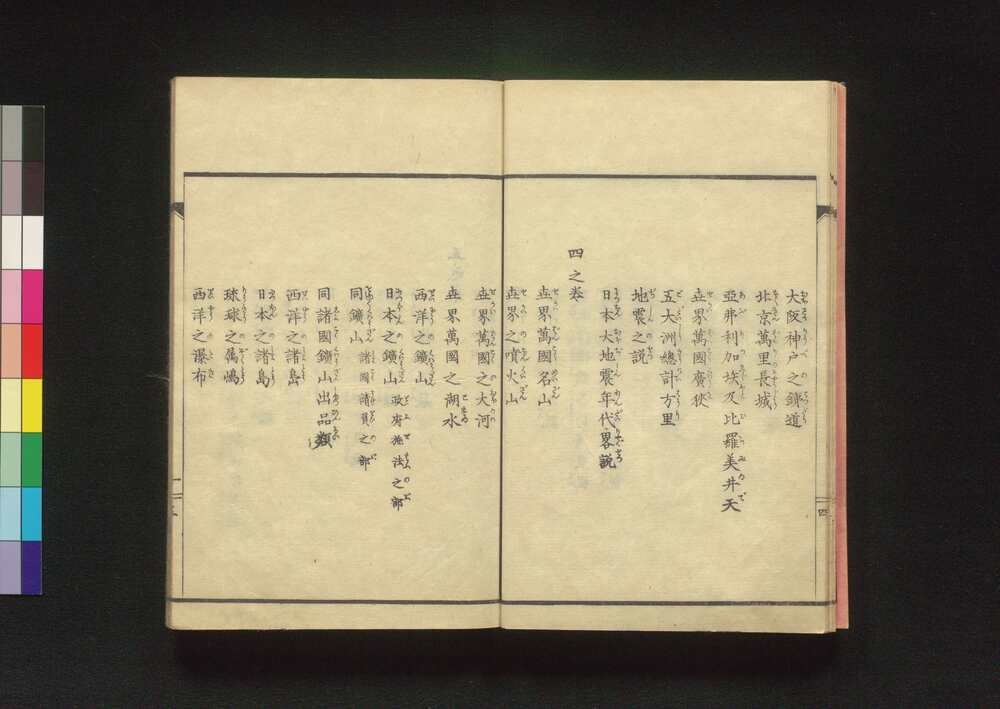 大阪神戸之鐵道
北京萬里長城
亞弗利加埃及比羅美井天
世界萬國廣狹
五大洲總計方里
地震之説
日本大地震年代畧説
四之巻
世界萬國名山
世界之噴火山
世界萬國之大河
世界萬國之湖水
西洋之鑛山
日本之鑛山 政府施法之部
同鑛山 諸國請負之部
同諸國鑛山出品類
西洋之諸島
日本之諸島
球球之属嶋
西洋之瀑布